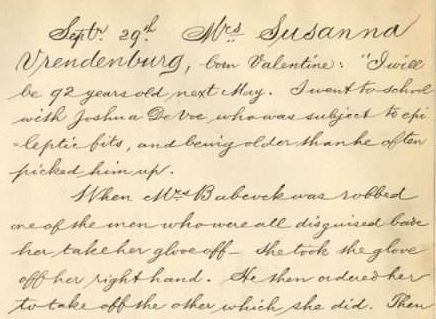 Septr. 29th. Mrs Susanna
Vrendenburg, born Valentine: "I will
be 92 years old next May. I went to school
with Joshua De Voe, who was subject to epi
=leptic fits, and being older than he often
picked him up.
When Mrs Babcock was robbed
one of the men who were all disguised bade
her take her glove off— She took the glove
off her right hand. He then ordered her
to take off the other which she did. Then